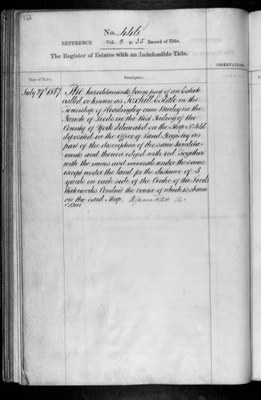 No. 446
REFERENCE Vol. 9 p. 35 Record of Title.
The Register of Estates with an Indefeasible Title.
Date of Entry.
Description.
OBSERVATIONS.
July 27th 1867 The hereditaments being part of an Estate
called or known as Foxhill Estate in the
Township of Headingley cum Burley in the
Parish of Leeds in the West Riding of the
County of York delineated on the Map No
deposited in the office of Land Registry as
part of the description of the same heredita-
ments and thereon edged with red Together
with the mines and minerals under the same
except under the land for the distance of 5
yards on each side of the Centre of the Leeds
Waterworks Conduit the course of which is shown
on the said Map.